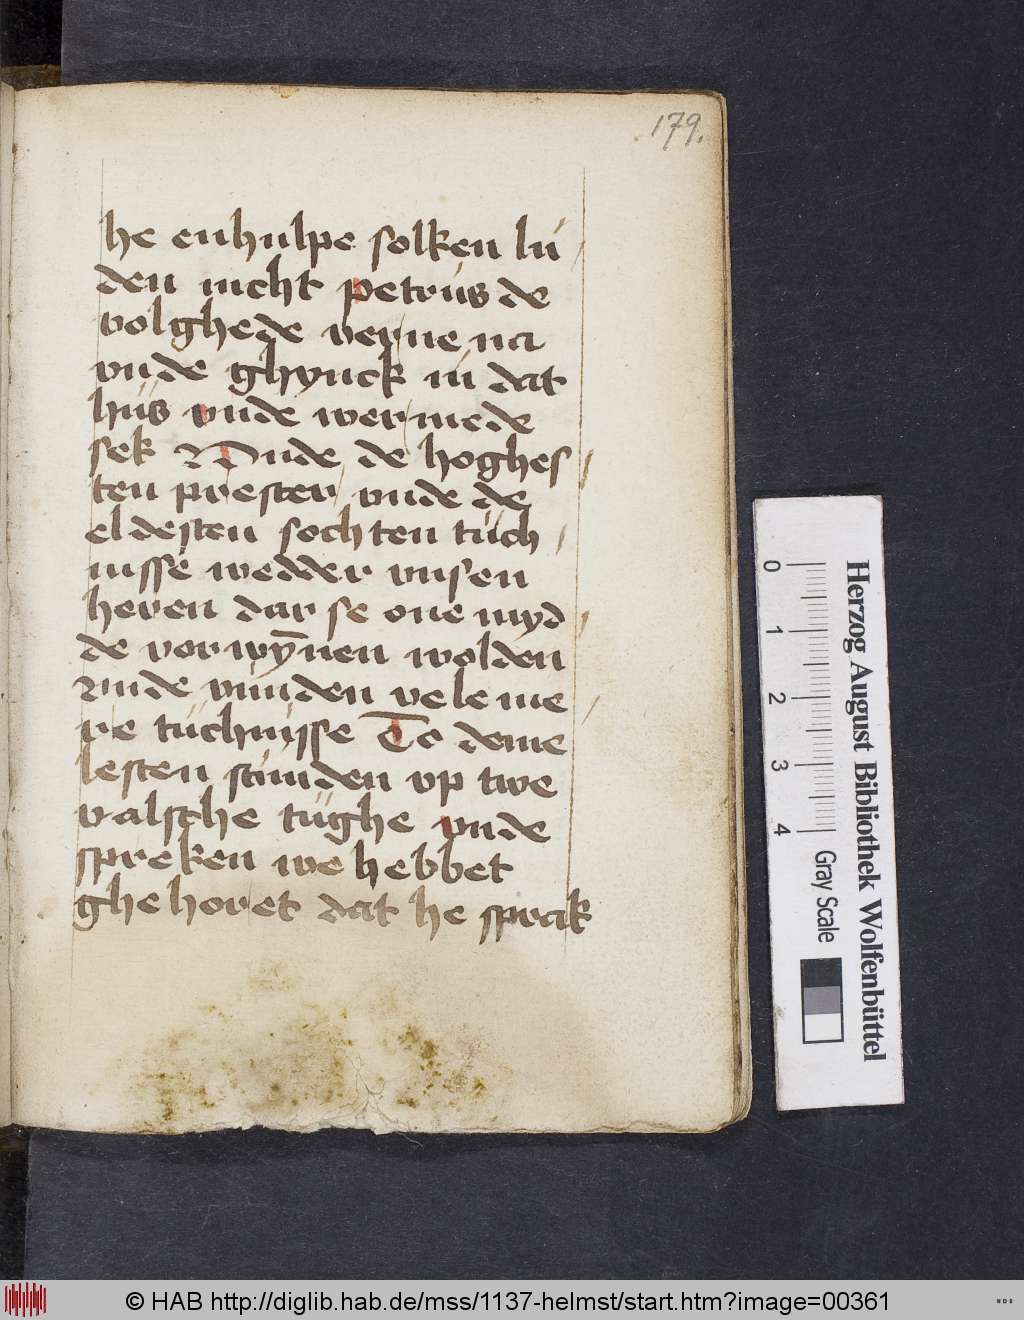 179.
he enhulpe solken lu
den nicht petrus de
volghede verne na
vnde ghynck in dat
hus vnde wermede
sek Vnde de hoghes
ten prester vnde de
eldesten sochten tuch
nisse wedder vnsen
heren dar se one myd
de vorwȳnen wolden
vnde vunden vele me
re tuchnisse To deme
lesten stunden vp twe
valsche tughe vnde
spreken we hebbet
ghehoret dat he sprak
Herzog August Bibliothek Wolfenbüttel
0 1 2 3 4 Gray Scale
© HAB http://diglib.hab.de/mss/1137-helmst/start.htm?image=00361